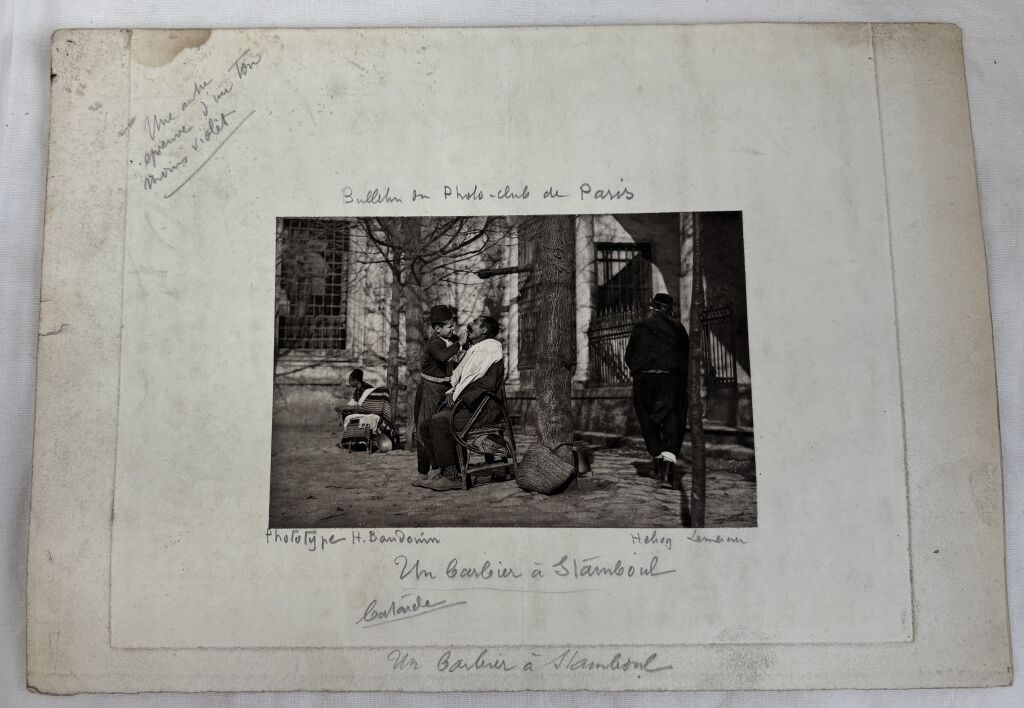 Une autre
épreuve d'un Ton
moins violet
Bulletin du Photo-club de Paris
Phototype H. Baudouin
Héliog Lemercier
Un barbier à Stamboul
batârde
Un Barbier à Stamboul